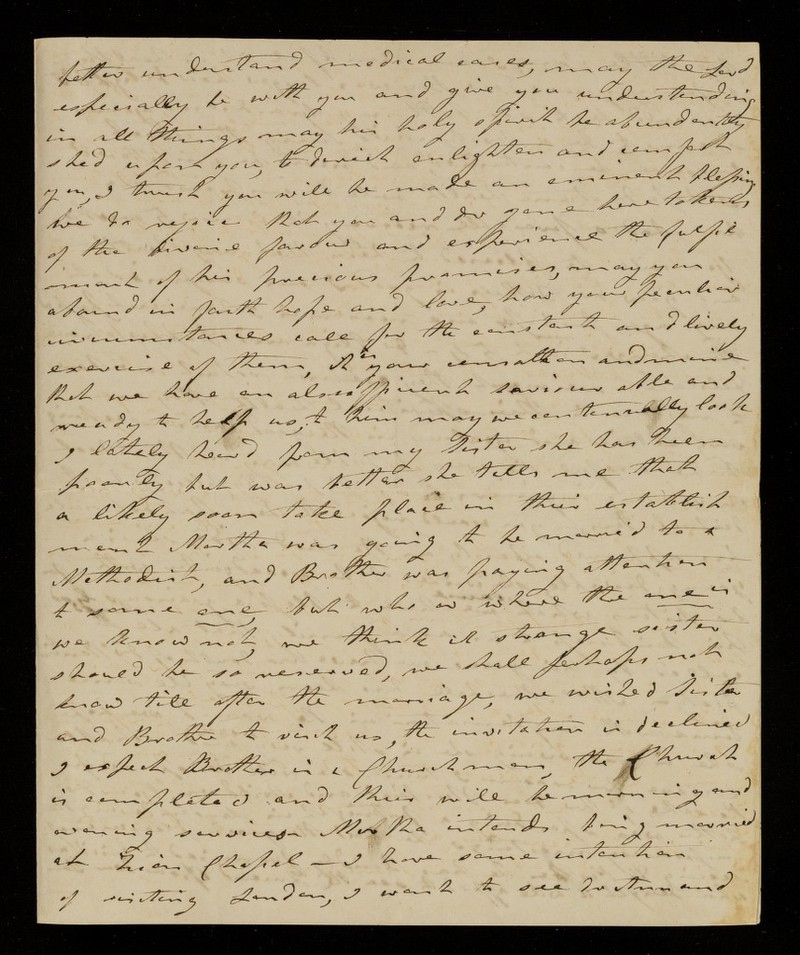 better understand medical cases, may the Lord
especially be with you and give you understanding
in all things may his holy spirit be abundently
shed upon you, to direct enlighten and comfort
you, I trust you will be made an eminent blessing
we do rejoice that you and dr Jane have tokens
of the divine favour and experience the fulfil
ment of his precious promises, may you
abound in faith hope and love, how your peculiar
circumstances call for the constant and lively
exercise of them, it is your consolation and mine
that we have an alsufficient saviour able and
ready to help us, to him may we contenually look
I lately heard from my Sister she has been
poorly but was better she tells me that
a likely soon take place in their establish
ment Martha was going to be married to a
Methodist, and Brother was paying attention
to some one, but who or where the one is
we know not, we think it strange sister
should be so reserved, we shall perhaps not
know till after the marriage, we wished Sister
and Brother to visit us, the invitation is declined
I expect Brother is a Churchman, the Church
is completed and their will be morning and
evening services Martha intends being married
at Zion Chapel - I have some intention
of visiting London, I want to see dr Ann and